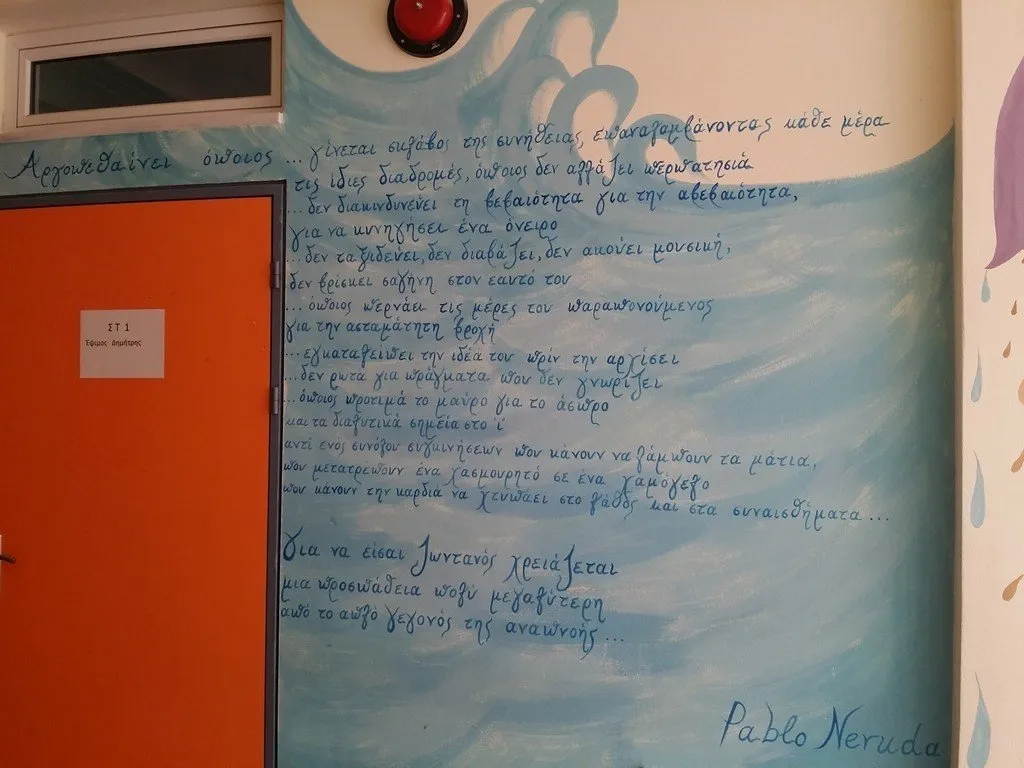 Αργοπεθαίνει όποιος ... γίνεται σκλάβος της συνήθειας, επαναλαμβάνοντας κάθε μέρα
τις ίδιες διαδρομές, όποιος δεν αλλάζει περπατησιά
... δεν διακινδυνεύει τη βεβαιότητα για την αβεβαιότητα,
για να κυνηγήσει ένα όνειρο
... δεν ταξιδεύει, δεν διαβάζει, δεν ακούει μουσική,
δεν βρίσκει σαγήνη στον εαυτό του
... όποιος περνάει τις μέρες του παραπονούμενος
για την ασταμάτητη βροχή
... εγκαταλείπει την ιδέα του πριν την αρχίσει
... δεν ρωτά για πράγματα που δεν γνωρίζει
... όποιος προτιμά το μαύρο για το άσπρο
και τα διαλυτικά σημεία στο ι
αντί ενός συνόλου συγκινήσεων που κάνουν να λάμπουν τα μάτια,
που μετατρέπουν ένα χασμουρητό σε ένα χαμόγελο
που κάνουν την καρδιά να χτυπάει στο λάθος και στα συναισθήματα ...
Για να είσαι ζωντανός χρειάζεται
μια προσπάθεια πολύ μεγαλύτερη
από το απλό γεγονός της αναπνοής ...
Pablo Neruda
ΣΤ 1
Έψιμος Δημήτρης